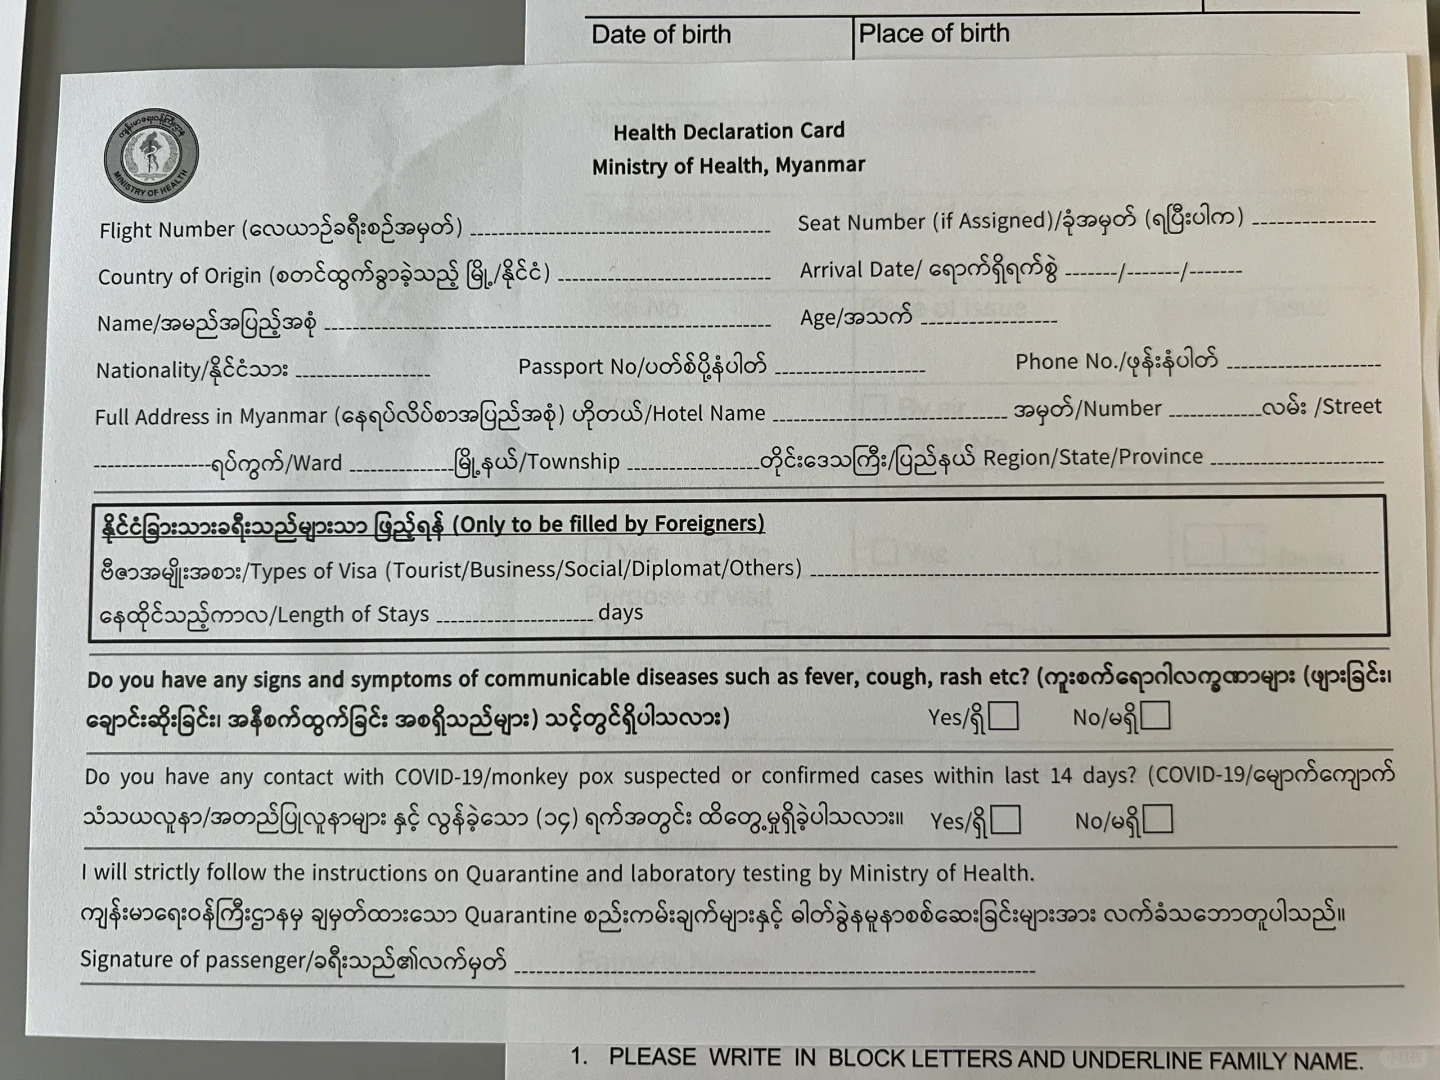 Date of birth
Place of birth
ကျန်းမာရေးဝန်ကြီးဌာန
MINISTRY OF HEALTH
Health Declaration Card
Ministry of Health, Myanmar
Flight Number (လေယာဉ်ခရီးစဉ်အမှတ်)
Seat Number (if Assigned)/ခုံအမှတ် (ရပြီးပါက)
Country of Origin (စတင်ထွက်ခွာခဲ့သည့် မြို့/နိုင်ငံ)
Arrival Date/ ရောက်ရှိရက်စွဲ -------/-------/-------
Name/အမည်အပြည့်အစုံ
Age/အသက်
Nationality/နိုင်ငံသား Passport No/ပတ်စ်ပို့နံပါတ် Phone No./ဖုန်းနံပါတ်
Full Address in Myanmar (နေရပ်လိပ်စာအပြည်အစုံ) ဟိုတယ်/Hotel Name အမှတ်/Number လမ်း /Street
ရပ်ကွက်/Ward မြို့နယ်/Township တိုင်းဒေသကြီး/ပြည်နယ် Region/State/Province
နိုင်ငံခြားသားခရီးသည်များသာ ဖြည့်ရန် (Only to be filled by Foreigners)
ဗီဇာအမျိုးအစား/Types of Visa (Tourist/Business/Social/Diplomat/Others)
နေထိုင်သည့်ကာလ/Length of Stays days
Do you have any signs and symptoms of communicable diseases such as fever, cough, rash etc? (ကူးစက်ရောဂါလက္ခဏာများ (ဖျားခြင်း၊
ချောင်းဆိုးခြင်း၊ အနီစက်ထွက်ခြင်း အစရှိသည်များ) သင့်တွင်ရှိပါသလား) Yes/ရှိ No/မရှိ
Do you have any contact with COVID-19/monkey pox suspected or confirmed cases within last 14 days? (COVID-19/မျောက်ကျောက်
သံသယလူနာ/အတည်ပြုလူနာများ နှင့် လွန်ခဲ့သော (၁၄) ရက်အတွင်း ထိတွေ့မှုရှိခဲ့ပါသလား။ Yes/ရှိ No/မရှိ
I will strictly follow the instructions on Quarantine and laboratory testing by Ministry of Health.
ကျန်းမာရေးဝန်ကြီးဌာနမှ ချမှတ်ထားသော Quarantine စည်းကမ်းချက်များနှင့် ဓါတ်ခွဲနမူနာစစ်ဆေးခြင်းများအား လက်ခံသဘောတူပါသည်။
Signature of passenger/ခရီးသည်၏လက်မှတ်
1. PLEASE WRITE IN BLOCK LETTERS AND UNDERLINE FAMILY NAME.